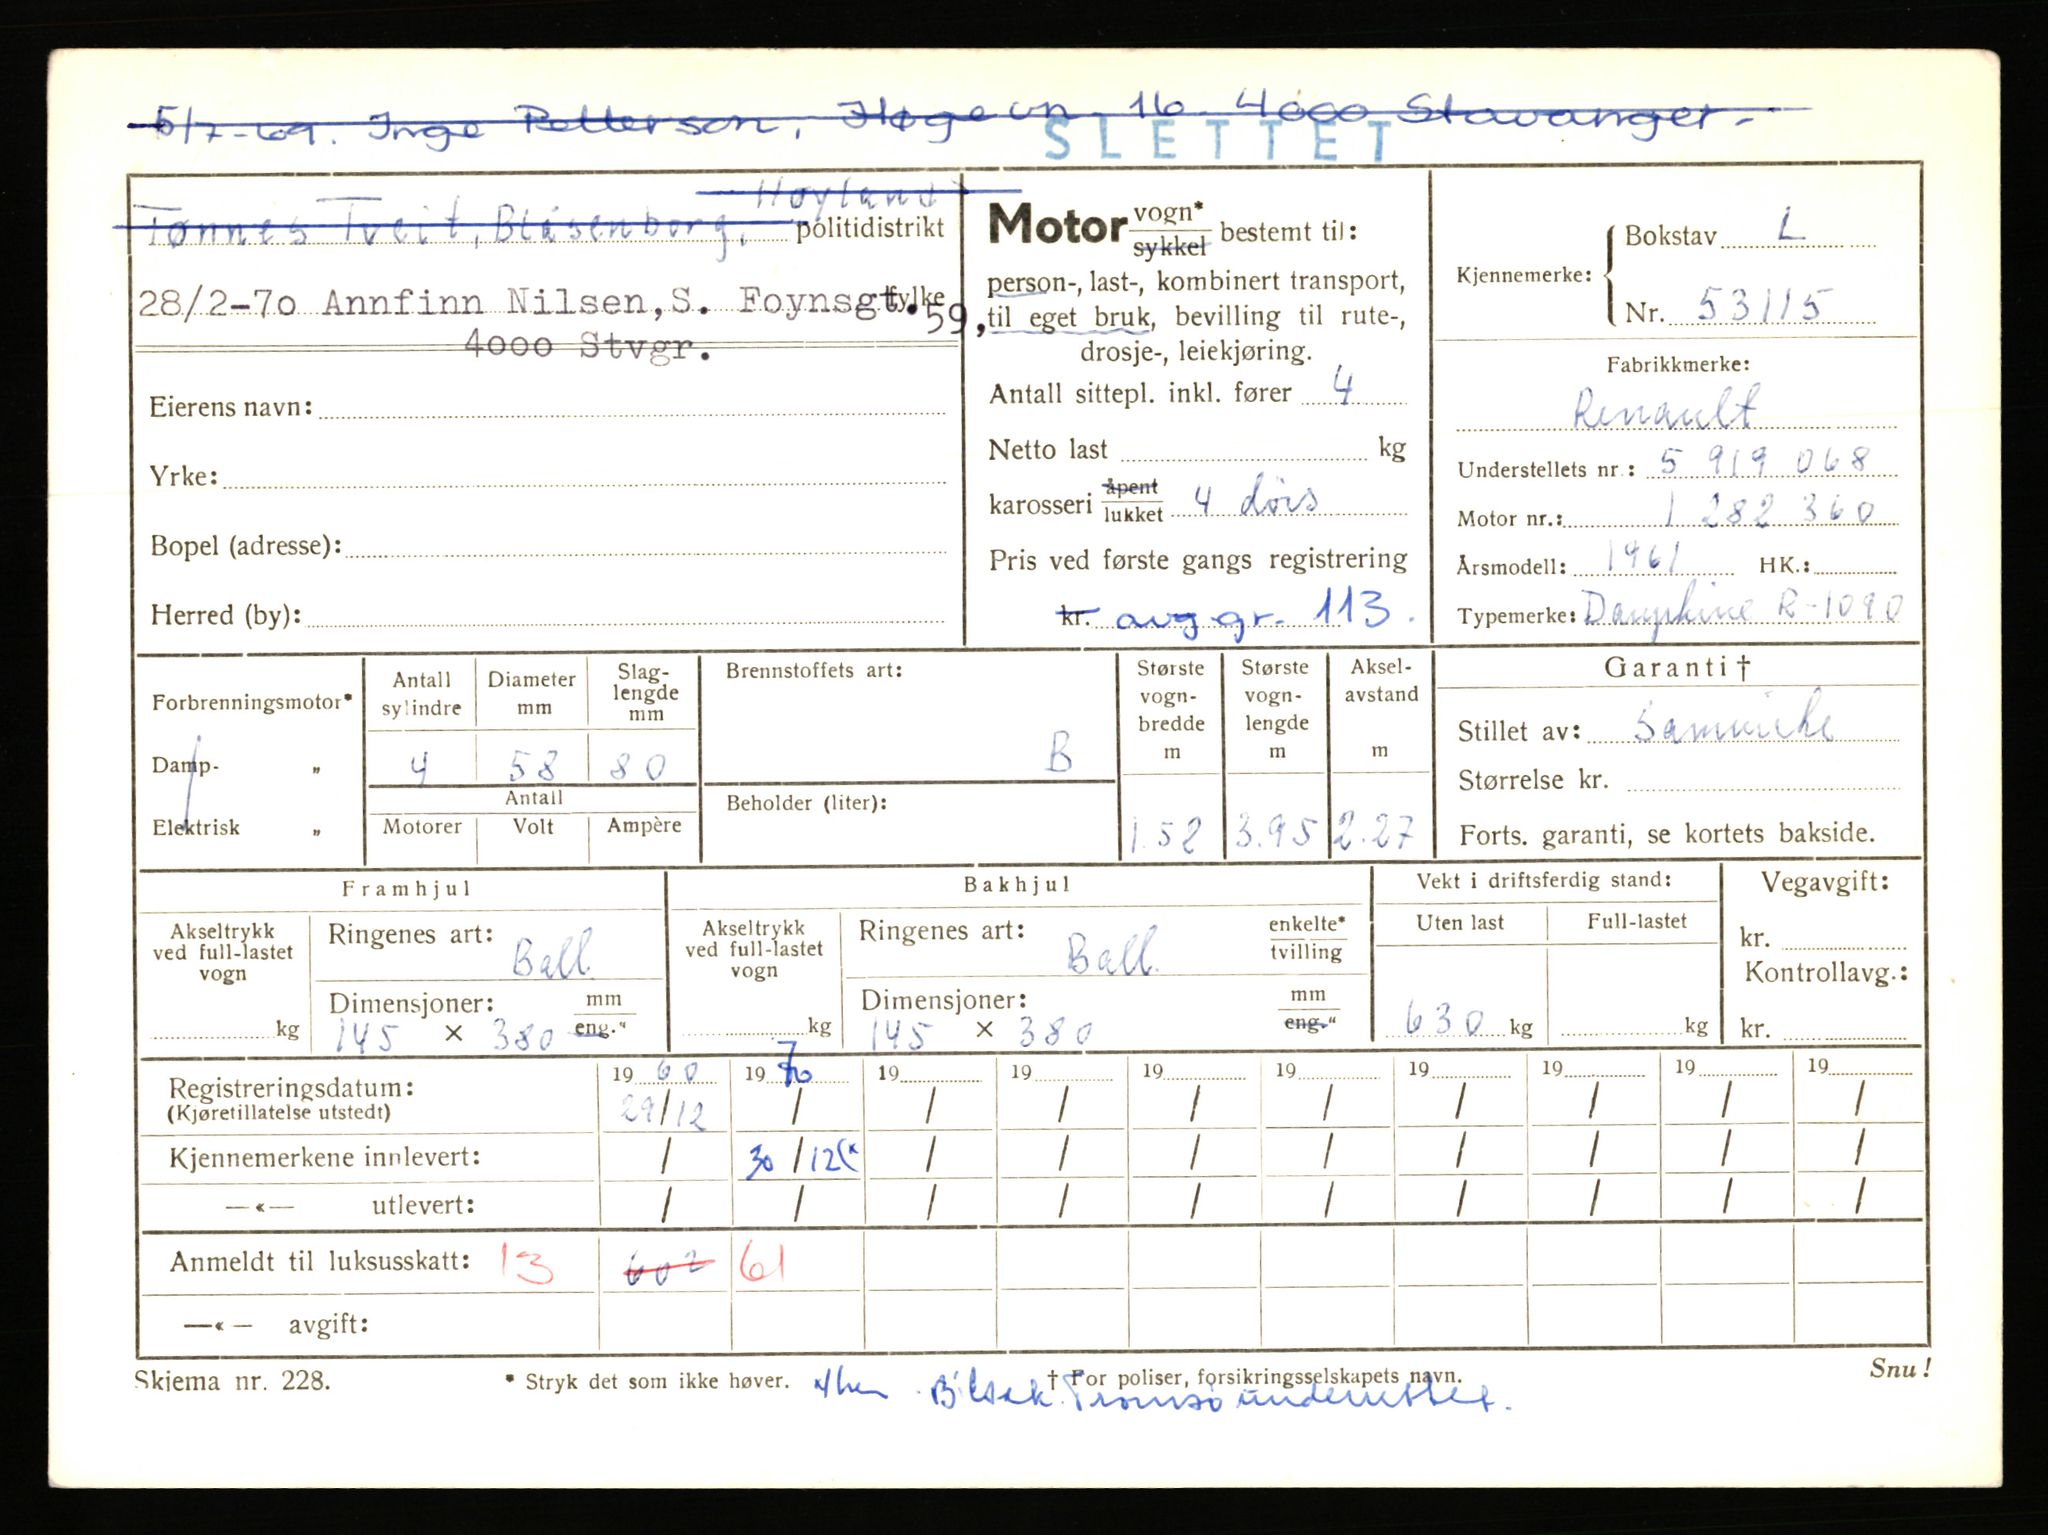 5/7-69. Inge Petterson, Høgevn 16 4000 Stavanger.
SLETTET
Høyland
Tønnes Tveit, Blåsenborg, politidistrikt
28/2-70 Annfinn Nilsen, S. Foynsgt. 59, fylke
4000 Stvgr.
Eierens navn:
Yrke:
Bopel (adresse):
Herred (by):
Motor vogn* sykkel bestemt til:
person-, last-, kombinert transport,
til eget bruk, bevilling til rute-,
drosje-, leiekjøring.
Antall sittepl. inkl. fører 4
Netto last kg
karosseri åpent lukket 4 dørs
Pris ved første gangs registrering
kr. avg gr. 113.
Kjennemerke: Bokstav L
Nr. 53115
Fabrikkmerke:
Renault
Understellets nr.: 5 919 068
Motor nr.: 1 282 360
Årsmodell: 1961 HK.:
Typemerke: Dauphine R-1090
Forbrenningsmotor*
Damp- „
Elektrisk „
Antall sylindre 4
Diameter mm 58
Slag-lengde mm 80
Antall
Motorer Volt Ampère
Brennstoffets art:
B
Beholder (liter):
Største vogn-bredde m 1.52
Største vogn-lengde m 3.95
Aksel-avstand m 2.27
Garanti †
Stillet av: Samvirke
Størrelse kr.
Forts. garanti, se kortets bakside.
Framhjul
Akseltrykk ved full-lastet vogn kg
Ringenes art: Ball.
Dimensjoner: mm eng."
145 × 380
Bakhjul
Akseltrykk ved full-lastet vogn kg
Ringenes art: Ball. enkelte* tvilling
Dimensjoner: mm eng."
145 × 380
Vekt i driftsferdig stand:
Uten last Full-lastet
630 kg kg
Vegavgift:
kr.
Kontrollavg.:
kr.
Registreringsdatum: 1960 1970 19 19 19 19 19 19 19 19
(Kjøretillatelse utstedt) 29/12 / / / / / / / / /
Kjennemerkene innlevert: / 30/12(* / / / / / / / /
—«— utlevert: / / / / / / / / / /
Anmeldt til luksusskatt: 13 602 61
—«— avgift:
Skjema nr. 228. * Stryk det som ikke høver. † For poliser, forsikringsselskapets navn. Snu!
Bilsak. Tromsø underrettet.